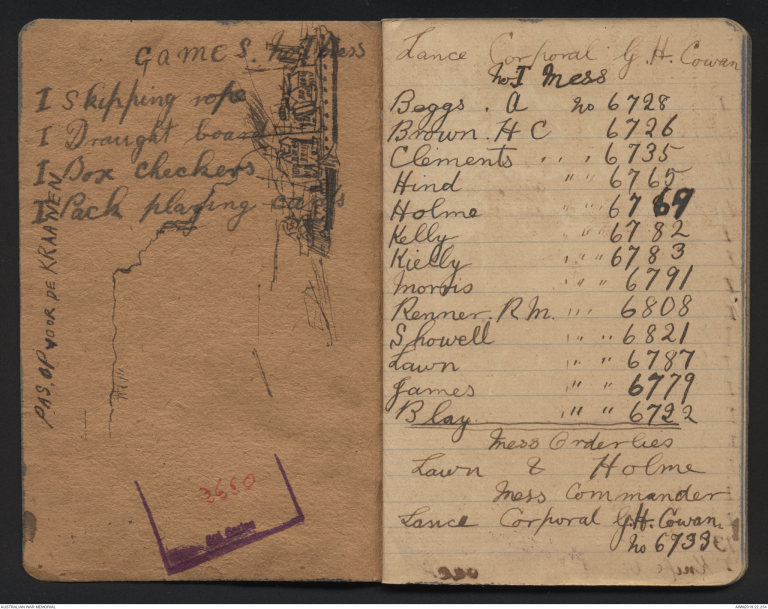 GAMES. In Mess
I Skipping rope
I Draught board
I Box checkers
I Pack playing cards
PAS. OP VOOR DE KRAANEN
3680
Lance Corporal G. H. Cowan
No I Mess
Beggs . A No 6728
Brown. H C 6726
Clements " " " 6735
Hind " " " 6765
Holme " " " 6769
Kelly " " " 6782
Kielly " " " 6783
Morris " " " 6791
Renner. R. M. " " " 6808
Showell " " " 6821
Lawn " " " 6787
James " " " 6779
Blay " " " 6722
Mess Orderlies
Lawn & Holme
Mess Commander
Lance Corporal G. H. Cowan.
No 6733
AUSTRALIAN WAR MEMORIAL